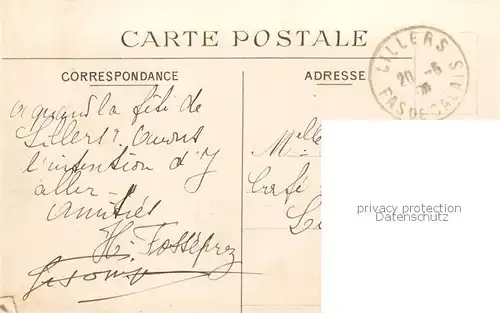 CARTE POSTALE
CORRESPONDANCE
ADRESSE
LILLERS
20 -5
PAS DE CALAIS
a quand la fête de
Lillers ? avons
l'intention d'y
aller -
amitiés
H. Fosséprez
Melle
Café
Li
privacy protection
Datenschutz